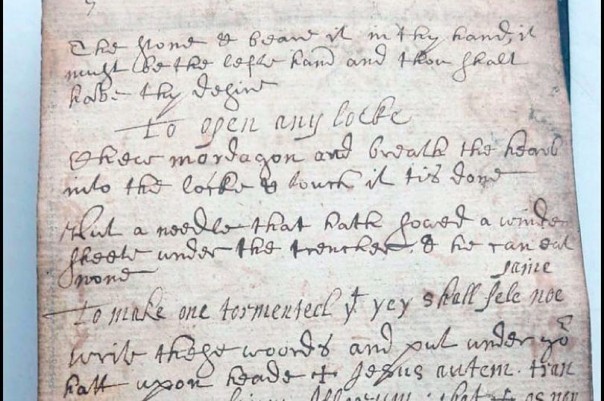 The stone & beare it in thy hand, it
must be the lefte hand and thou shalt
have thy desire
To open any locke
Chew mordagon and breath the hearb
into the locke & touch it tis done
Put a needle that hath sowed a winde
sheete under the trencher & he can eat
none
paine
To make one tormented yt yey shall fele noe
write these woords and put under yor
hatt upon heade + Jesus autem tran